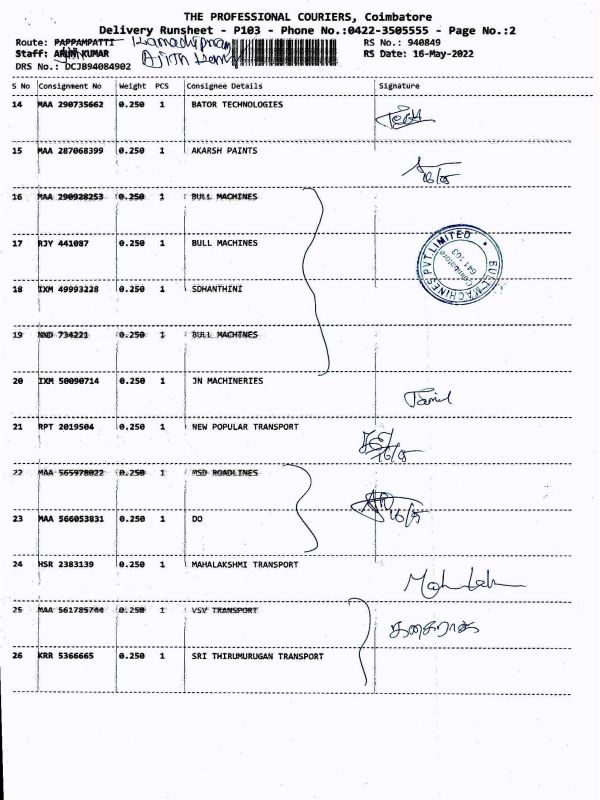 THE PROFESSIONAL COURIERS, Coimbatore
Delivery Runsheet - P103 - Phone No.:0422-3505555 - Page No.:2
Route: PAPPAMPATTI
RS No.: 940849
Staff: ARJUN KUMAR
RS Date: 16-May-2022
DRS No.: DCJB94084902
S No Consignment No Weight PCS Consignee Details Signature
14 MAA 290735662 0.250 1 BATOR TECHNOLOGIES
15 MAA 287068399 0.250 1 AKARSH PAINTS
16 MAA 290928253 0.250 1 BULL MACHINES
17 RJY 441087 0.250 1 BULL MACHINES
BULL MACHINES PVT. LIMITED
Coimbatore
641 103
18 IXM 49993228 0.250 1 SDHANTHINI
19 NND 734221 0.250 1 BULL MACHINES
20 IXM 50090714 0.250 1 JN MACHINERIES
Tamil
21 RPT 2019504 0.250 1 NEW POPULAR TRANSPORT
16/5
22 MAA 565978022 0.250 1 MSD ROADLINES
16/5
23 MAA 566053831 0.250 1 DO
24 HSR 2383139 0.250 1 MAHALAKSHMI TRANSPORT
25 MAA 561785744 0.250 1 VSV TRANSPORT
26 KRR 5366665 0.250 1 SRI THIRUMURUGAN TRANSPORT